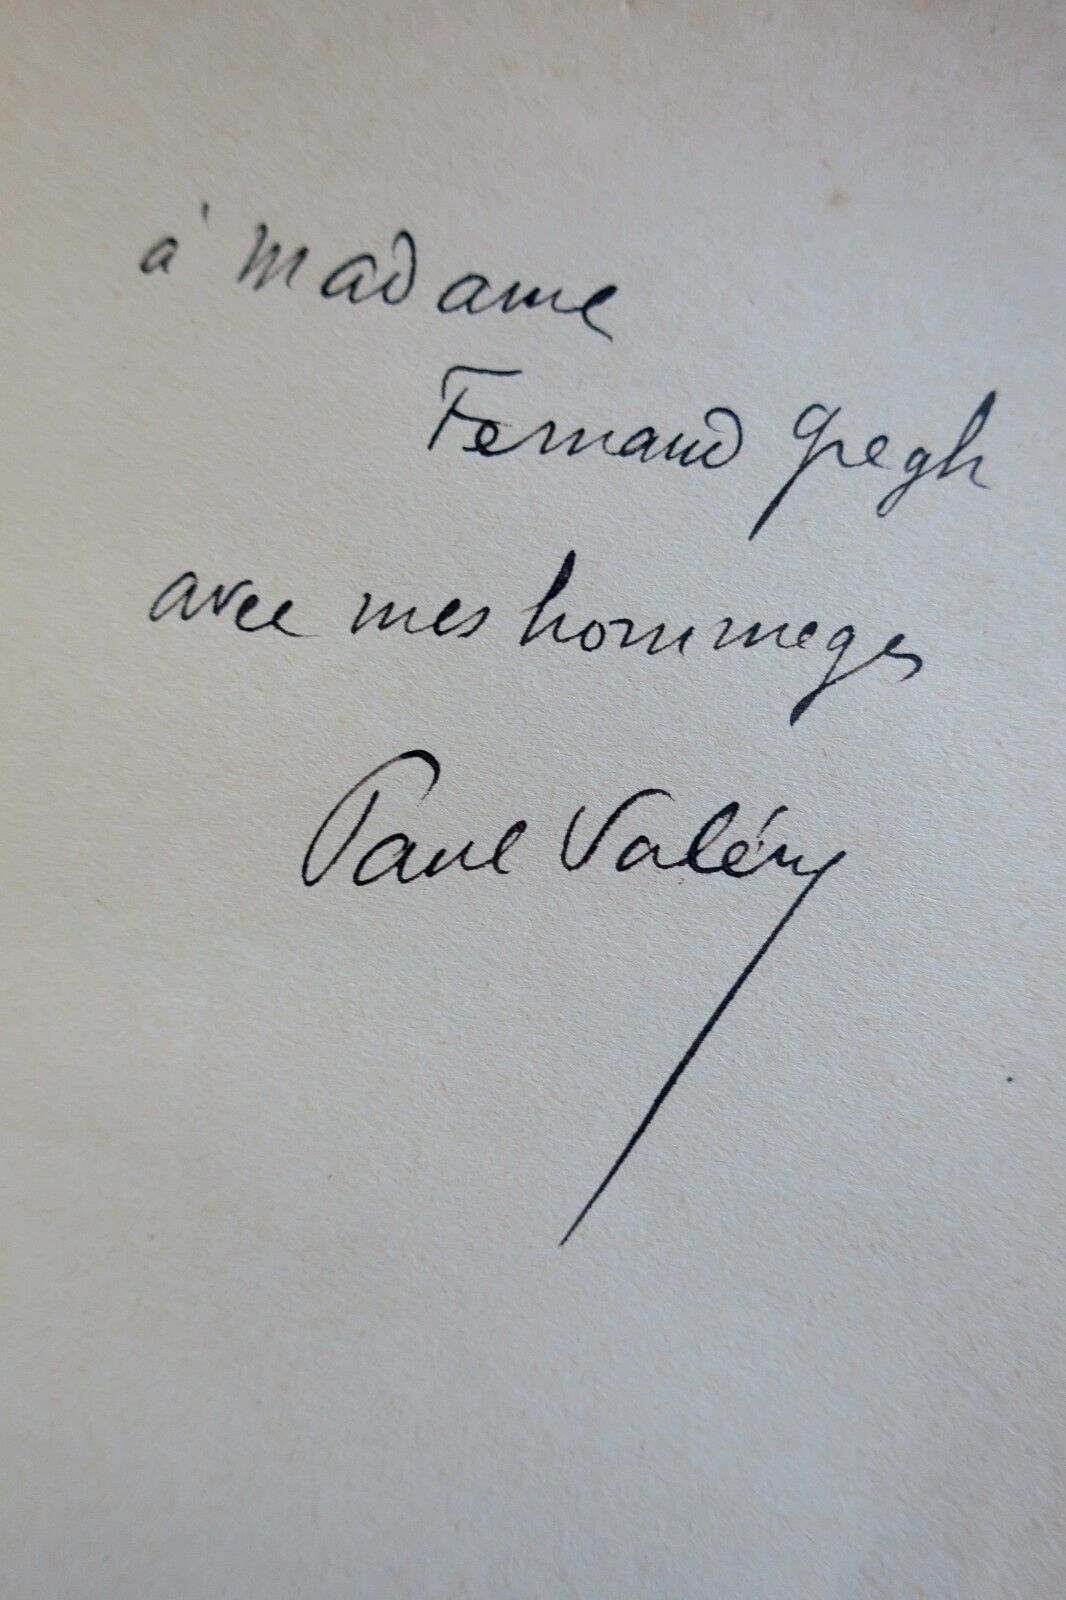 à Madame
Fernand Gregh
avec mes hommages
Paul Valéry